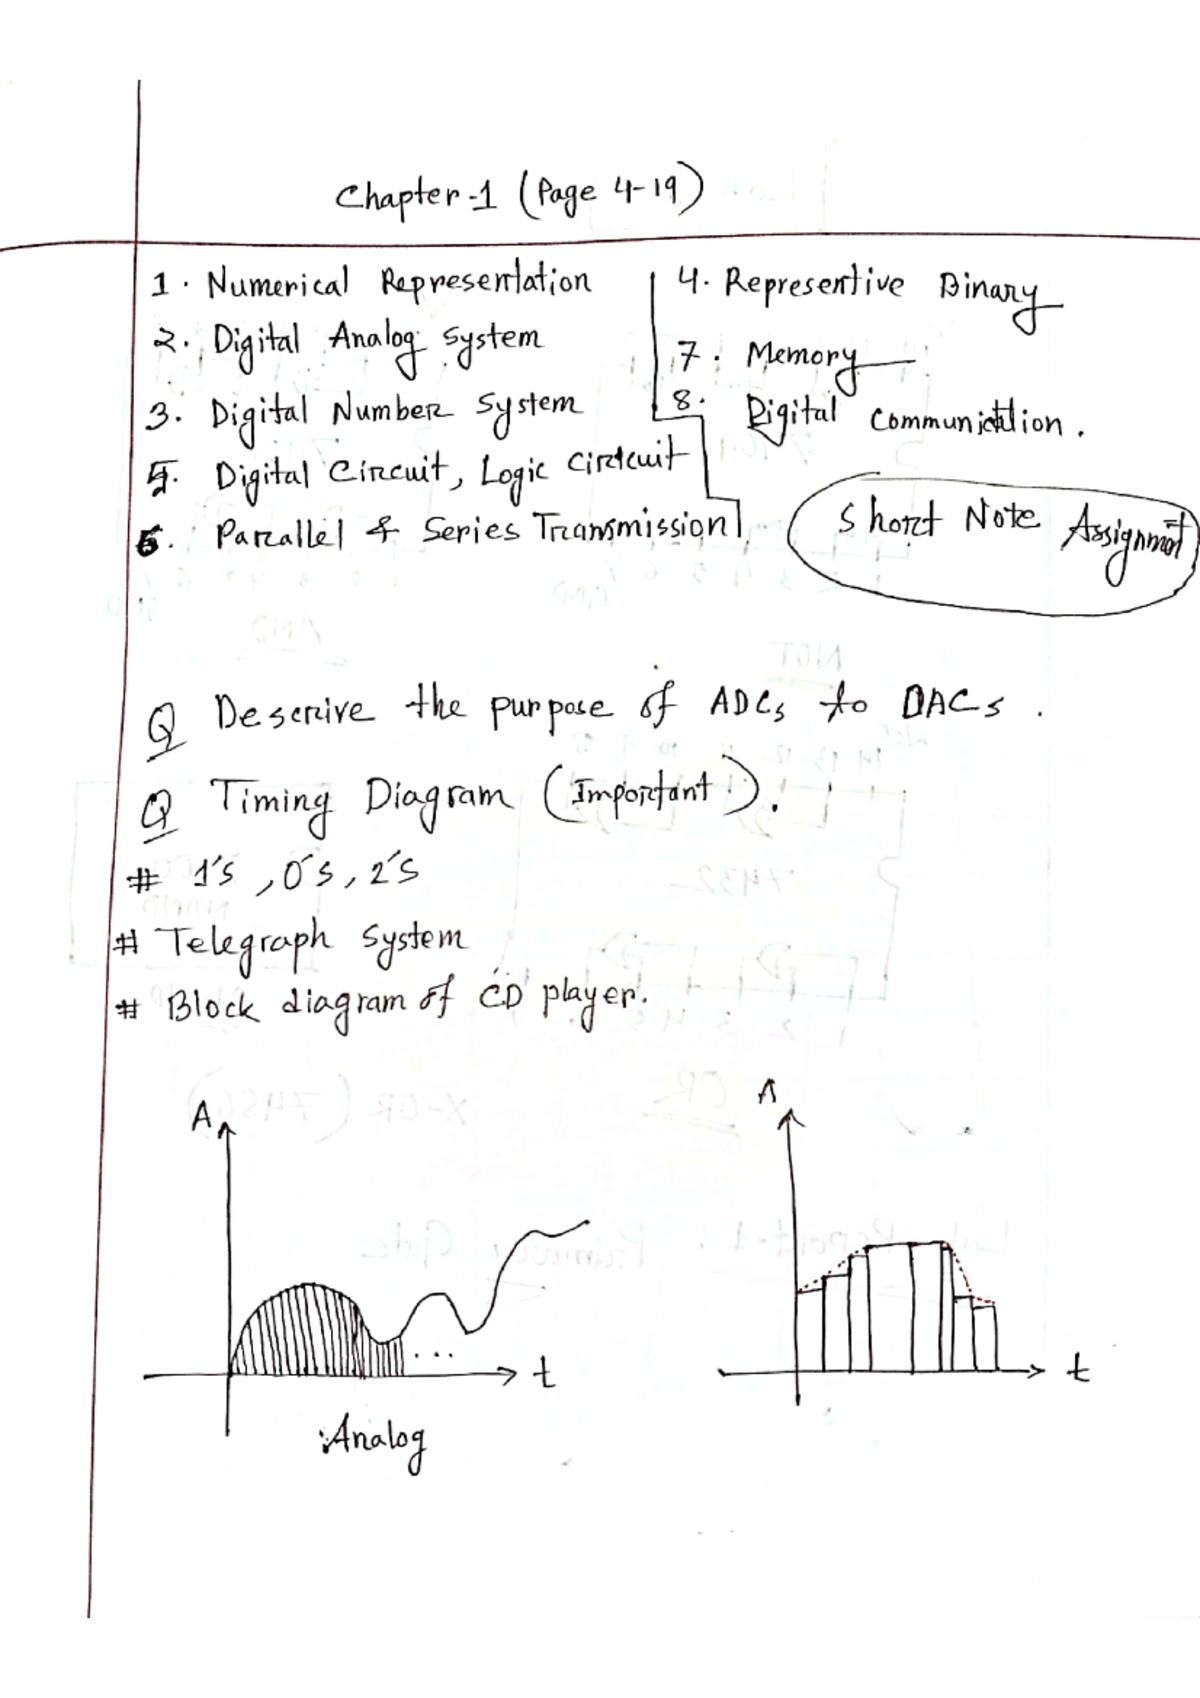 Chapter-1 (Page 4-19)
1. Numerical Representation
2. Digital Analog System
3. Digital Number System
5. Digital Circuit, Logic Circuit
6. Parallel & Series Transmission
4. Representive Binary
7. Memory
8. Digital Communication.
Short Note Assignment
Q Descrive the purpose of ADCs to DACs.
Q Timing Diagram (Important).
# 1's, 0's, 2's
# Telegraph System
# Block diagram of CD player.
A
t
Analog
A
t